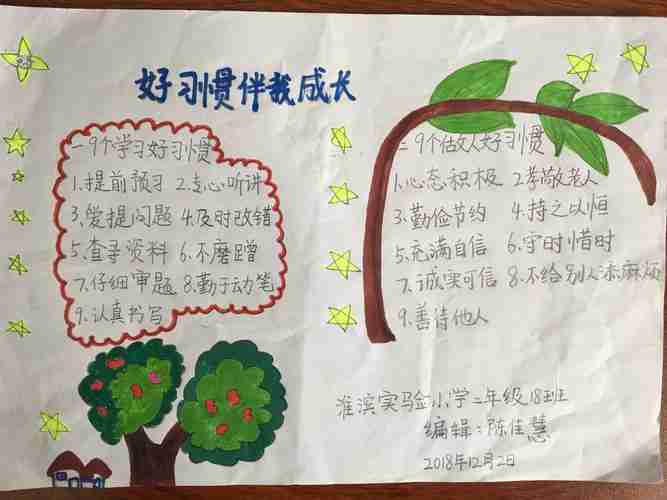 好习惯伴我成长
一9个学习好习惯
1.提前预习 2.专心听讲
3.爱提问题 4.及时改错
5.查寻资料 6.不磨蹭
7.仔细审题 8.勤于动笔
9.认真书写
二9个做人好习惯
1.心态积极 2.孝敬老人
3.勤俭节约 4.持之以恒
5.充满自信 6.守时惜时
7.诚实可信 8.不给别人添麻烦
9.善待他人
淮滨实验小学二年级18班
编辑:陈佳慧
2018年12月2日